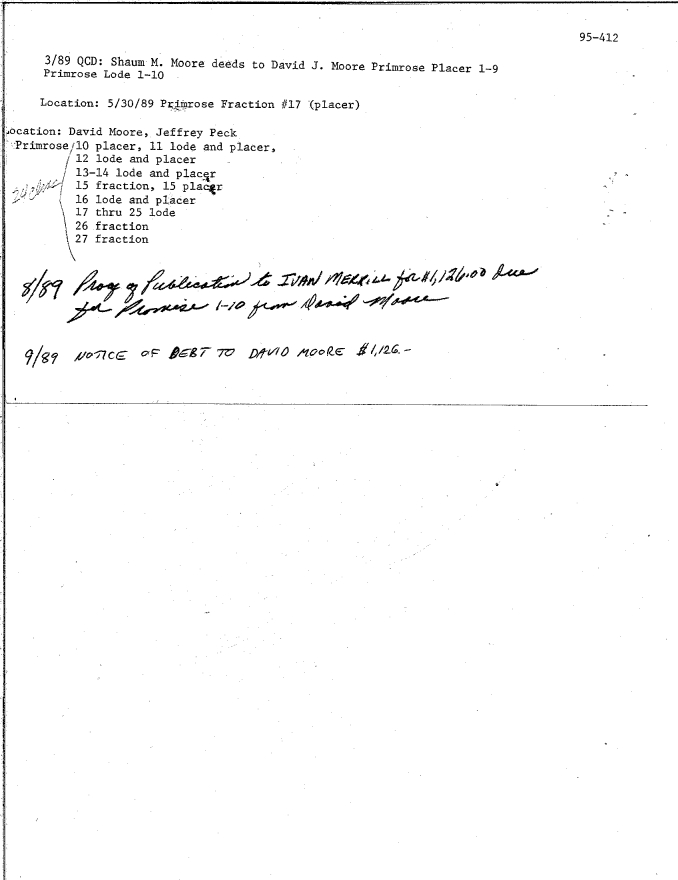 95-412
3/89 QCD: Shaum M. Moore deeds to David J. Moore Primrose Placer 1-9
Primrose Lode 1-10
Location: 5/30/89 Primrose Fraction #17 (placer)
ocation: David Moore, Jeffrey Peck
Primrose 10 placer, 11 lode and placer,
12 lode and placer
13-14 lode and placer
15 fraction, 15 placer
24 claims
16 lode and placer
17 thru 25 lode
26 fraction
27 fraction
8/89 Proof of Publication to IVAN MERRILL for $1,126.00 due
for Promise 1-10 from David Moore
9/89 NOTICE OF DEBT TO DAVID MOORE $1,126.-